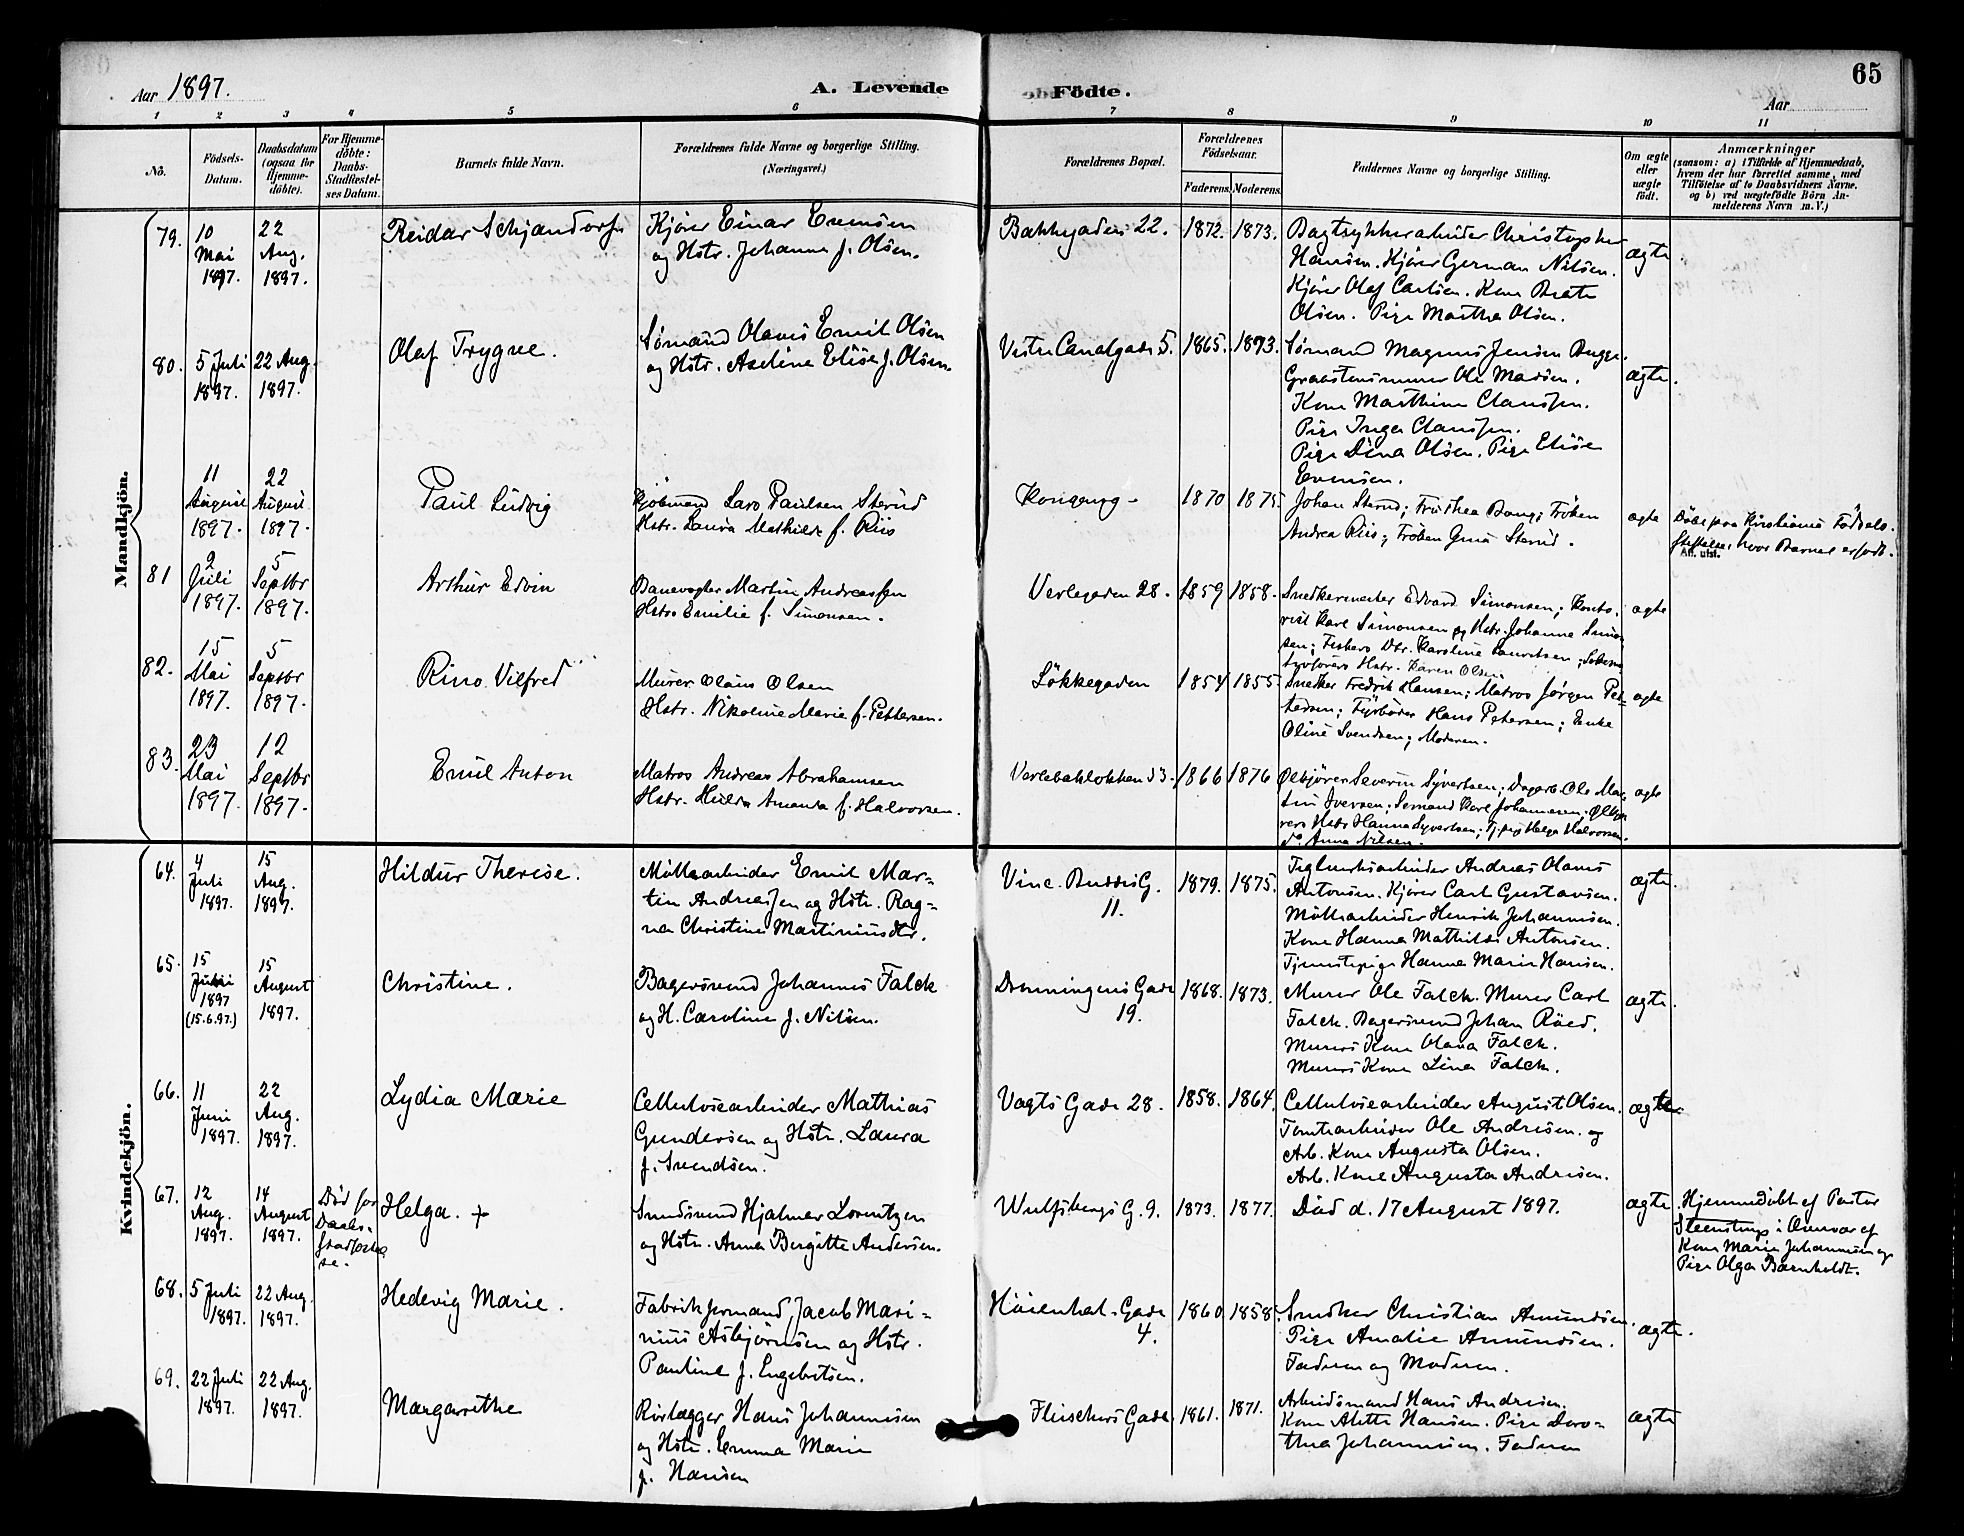 Aar 1897.
A. Levende
Födte.
65
Aar
1 2 3 4 5 6 7 8 9 10 11
No.
Födsels-
Datum.
Daabsdatum
(ogsaa for
Hjemme-
döbte).
For Hjemme-
döbte:
Daabs-
Stadfæstel-
ses Datum.
Barnets fulde Navn.
Forældrenes fulde Navne og borgerlige Stilling.
(Næringsvei.)
Forældrenes Bopæl.
Forældrenes
Födselsaar.
Faderens. Moderens.
Faddernes Navne og borgerlige Stilling.
Om ægte
eller
uægte
födt.
Anmærkninger
(saasom: a) i Tilfælde af Hjemmedaab,
hvem der har forrettet samme, med
Tilföielse af to Daabsvidners Navne,
og b) ved uægtefödte Börn An-
melderens Navn m. V.)
Mandkjön.
79.
10
Mai
1897.
22
Aug.
1897.
Reidar Schjandorf
Kjører Einar Evensen
og Hstr. Johanne f. Olsen.
Bakkegaden 22.
1872. 1873.
Christopher
Hansen. Kjører German Nilsen.
Kjører Olaf Carlsen. Kone Beate
Olsen. Pige Martha Olsen.
ægte
80.
5 Juli
1897.
22 Aug.
1897.
Olaf Trygve.
Sømand Olaus Emil Olsen
og Hstr. Axeline Elise f. Olsen.
Vestre Canalgade 5.
1865. 1873.
Sømand Magnus Jensen Bugge.
Ole Madsen.
Kone Marthine Clausen.
Pige Inga Clausen.
Pige Dina Olsen. Pige Elise
Evensen.
ægte.
11
August
1897.
22
August
1897.
Paul Ludvig
Kjøbmand Lars Paulsen Sterud
Hstr. Laura Mathilde f. Riis
Kongensg-
1870 1875.
Johan Sterud; Fru Thea Bang; Frøken
Andrea Riis; Frøken Gina Sterud.
ægte
Döbt paa Kristiania Fødsels-
stiftelse, hvor Barnet er født.
Att. utst.
81
2
Juli
1897.
5
Septbr
1897.
Arthur Edvin
Banevogter Martin Andreassen
Hstr. Emilie f. Simonsen.
Verlegaden 28.
1859 1858.
Snedkermester Edvard Simonsen; Konto-
rist Karl Simonsen og Hstr. Johanne Simon-
sen; Fiskers Dtr. Karoline Lauritsen;
Hstr. Karen Olsen.
ægte
82.
15
Mai
1897.
5
Septbr
1897.
Rino Vilfred
Murer Olaus Olsen
Hstr. Nikoline Marie f. Pettersen.
Løkkegaden
1854 1855
Snedker Fredrik Hansen; Matros Jørgen Pet-
tersen; Fyrbøder Hans Petersen; Enke
Oline Svendsen; Moderen.
ægte
83.
23
Mai
1897.
12
Septbr
1897.
Emil Anton
Matros Andreas Abrahamsen
Hstr. Hulda Amanda f. Halvorsen.
Verlebakløkken 53.
1866 1876
Ølkjører Severin Syvertsen; Dagarb. Ole Mar-
tin Iversen; Sømand Karl Johannesen; Ølkjø-
rers Hstr. Hanna Syvertsen; Tj.pige Helga Halvorsen.
do Anna Nilsen.
ægte
Kvindekjön.
64.
4
Juli
1897.
15
Aug.
1897.
Hildur Therese.
Møllearbeider Emil Mar-
tin Andreassen og Hstr. Rag-
na Christine Martiniusdtr.
Vinc. Buddes G.
11.
1879. 1875.
Teglverksarbeider Andreas Olaus
Antonsen. Kjører Carl Gustavsen.
Møllearbeider Henrik Johannesen.
Kone Hanna Mathilde Antonsen.
Tjenestepige Hanna Marie Hansen.
ægte.
65.
15
1897
(15.6.97.)
15
August
1897.
Christine.
Bagersvend Johannes Falck
og H. Caroline f. Nilsen.
Dronningens Gade
19.
1868. 1873.
Murer Ole Falck. Murer Carl
Falck. Bagersvend Johan Røed.
Murers Kone Olava Falck.
Murers Kone Lina Falck.
ægte.
66.
11
Juni
1897.
22
Aug.
1897.
Lydia Marie
Cellulosearbeider Mathias
Gundersen og Hstr. Laura
f. Svendsen.
Vogts Gade 28.
1858. 1864.
Cellulosearbeider August Olsen.
Tomtearbeider Ole Andresen. og
Arb. Kone Augusta Olsen.
Arb. Kone Augusta Andresen.
ægte
67.
12
Aug.
1897.
14
August
1897.
Död før
Daabs-
stadfæstel-
se.
Helga. +
Smedsvend Hjalmar Lorentzen
og Hstr. Anna Birgitte Andersen.
Wulfsbergs G. 9.
1873. 1877.
Död d. 17 August 1897.
ægte
Hjemmedøbt af Pastor
Steenstrup i Overvær af
Kone Marie Johannesen og
Pige Olga Barnholdt.
68.
5 Juli
1897.
22 Aug.
1897.
Hedevig Marie.
Fabrikformand Jacob Mari-
nius Asbjørnsen og Hstr.
Pauline f. Engebretsen.
Gade
4.
1860 1858.
Snedker Christian Amundsen.
Pige Amalie Amundsen.
Faderen og Moderen.
ægte.
69.
22 Juli
1897.
22 Aug.
1897.
Margarethe
Rørlægger Hans Johannesen
og Hstr. Emma Marie
f. Hansen
Fleischers Gade.
1861. 1871.
Arbeidsmand Hans Andresen.
Kone Alette Hansen. Pige Doro-
thea Johannesen. Faderen
ægte